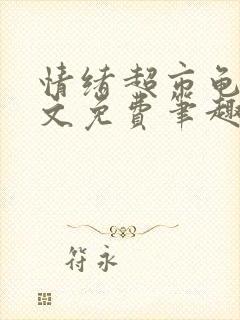 情绪超市龟
文免费笔趣
符永